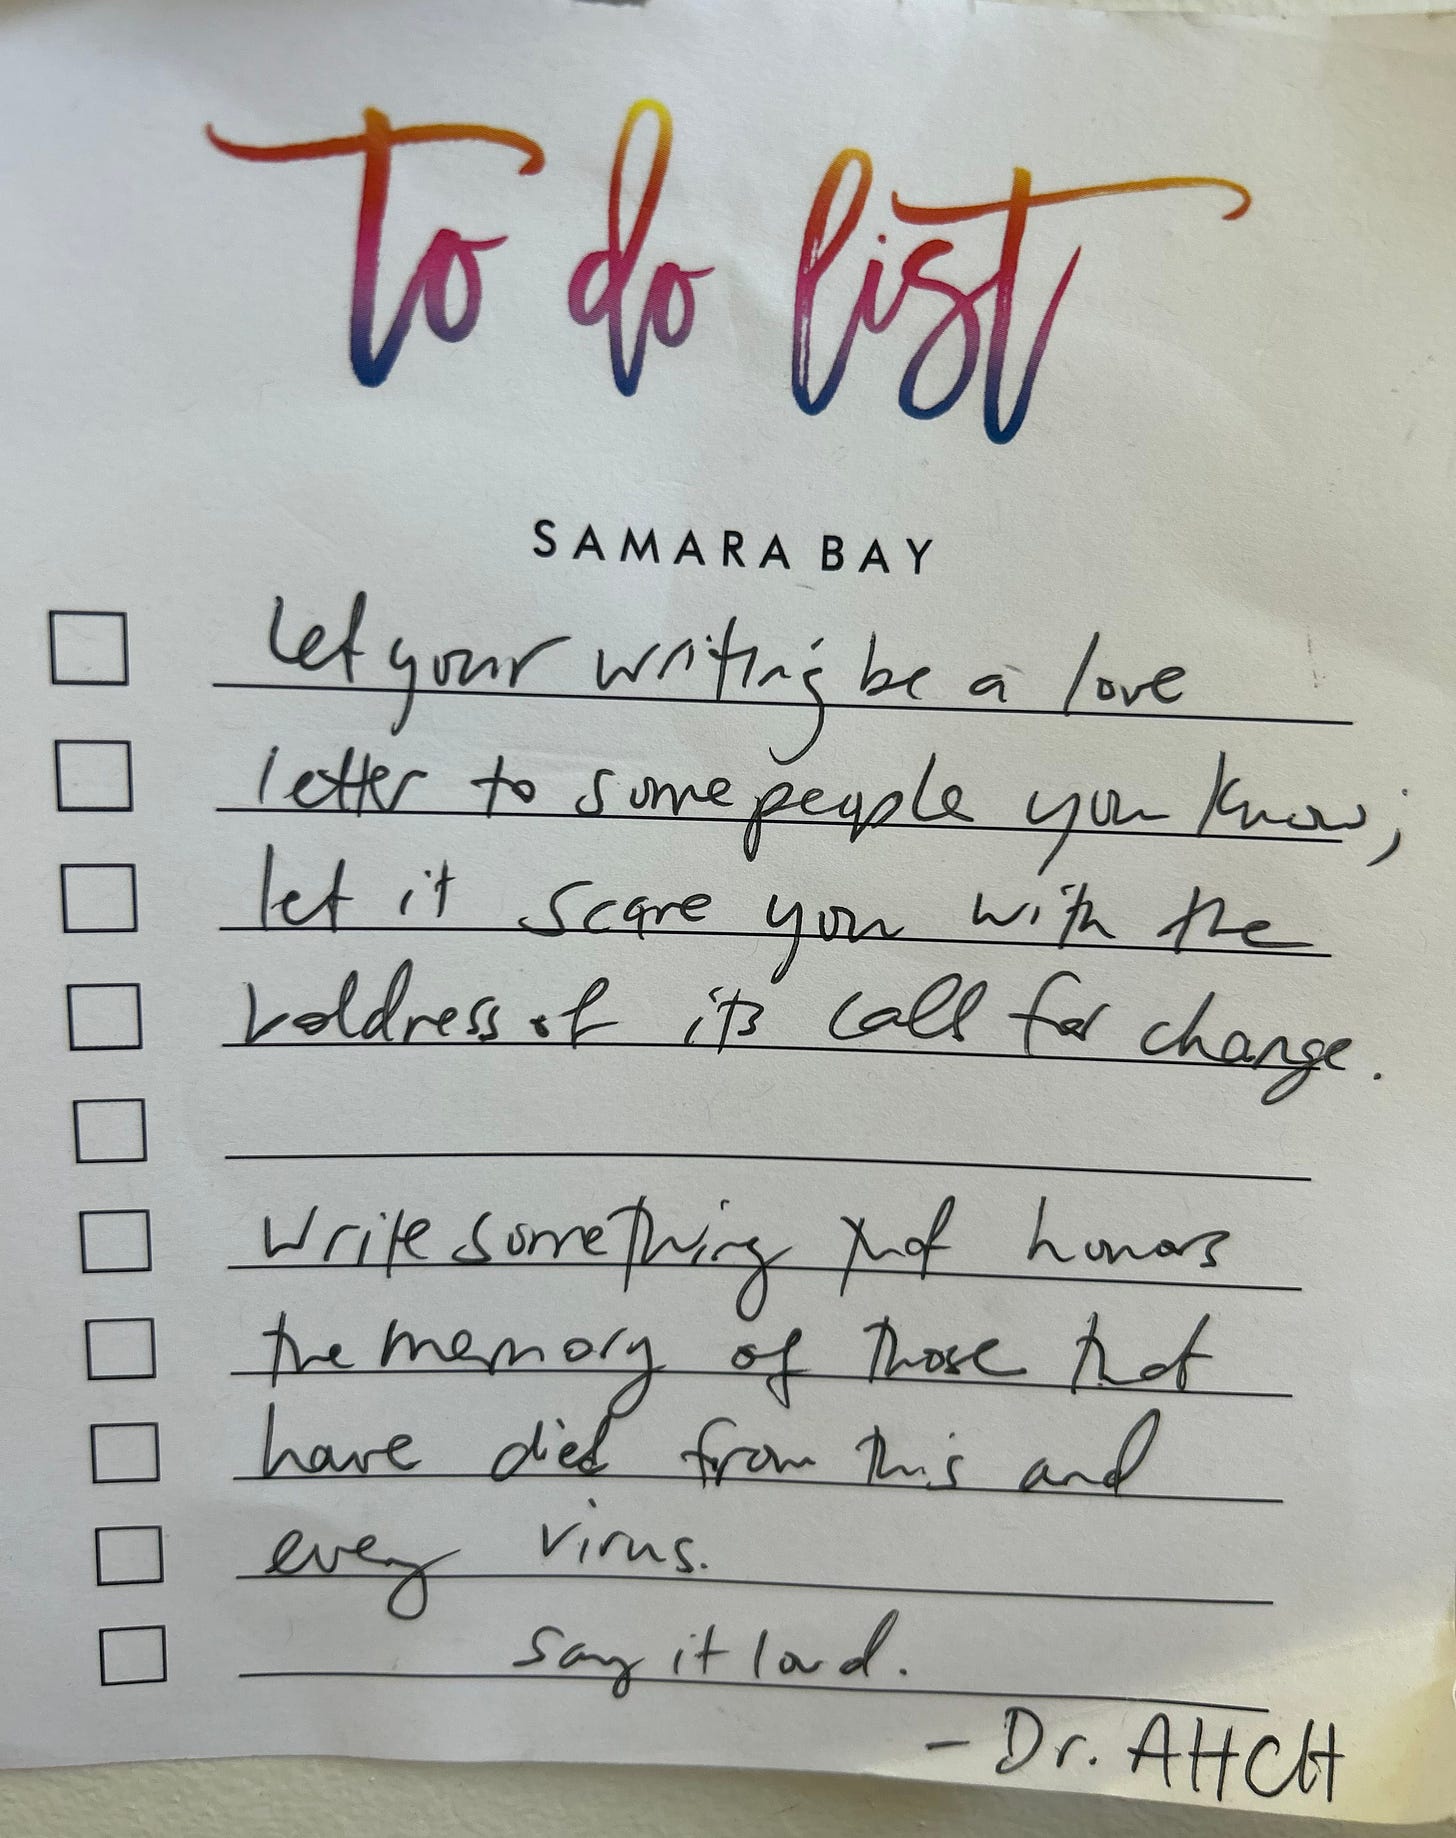 to do list
SAMARA BAY
Let your writing be a love
letter to some people you know;
let it scare you with the
boldness of its call for change.
Write something that honors
the memory of those that
have died from this and
every virus.
say it loud.
- Dr. AHCH